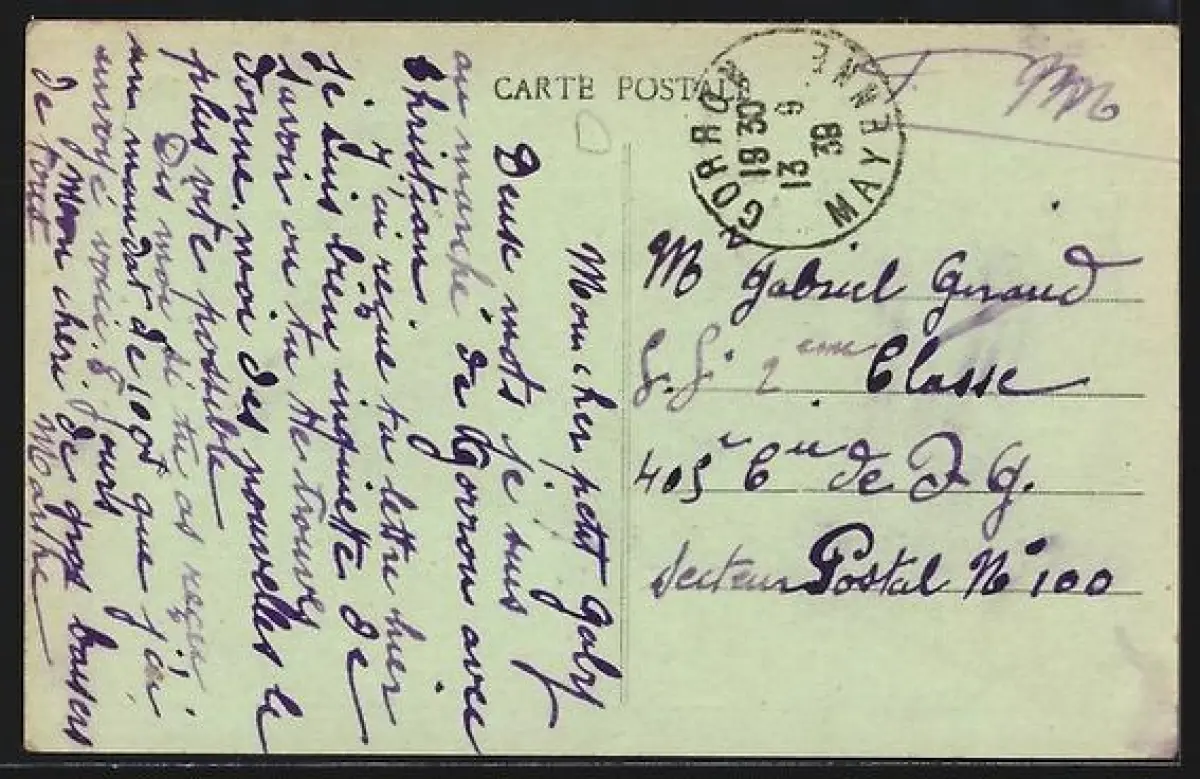 CARTE POSTALE
GORRON
18 30
13
9
39
MAYENNE
FM
Mr Gabriel Geraud
2eme Classe
405e Cie de
Secteur Postal No 100
Mon cher petit Gaby
Deuse mots je suis
au marché de Gorron avec
Christian
J'ai reçue ta lettre hier
je suis bien inquiette de
savoir ou tu te trouves
Donne moi des nouvelles le
plus vite possible
Dis moi si tu as reçue
un mandat de 100f que j'ai
envoyé voici 8 jours
Mon cheri de gros baisers
de tout
Marthe